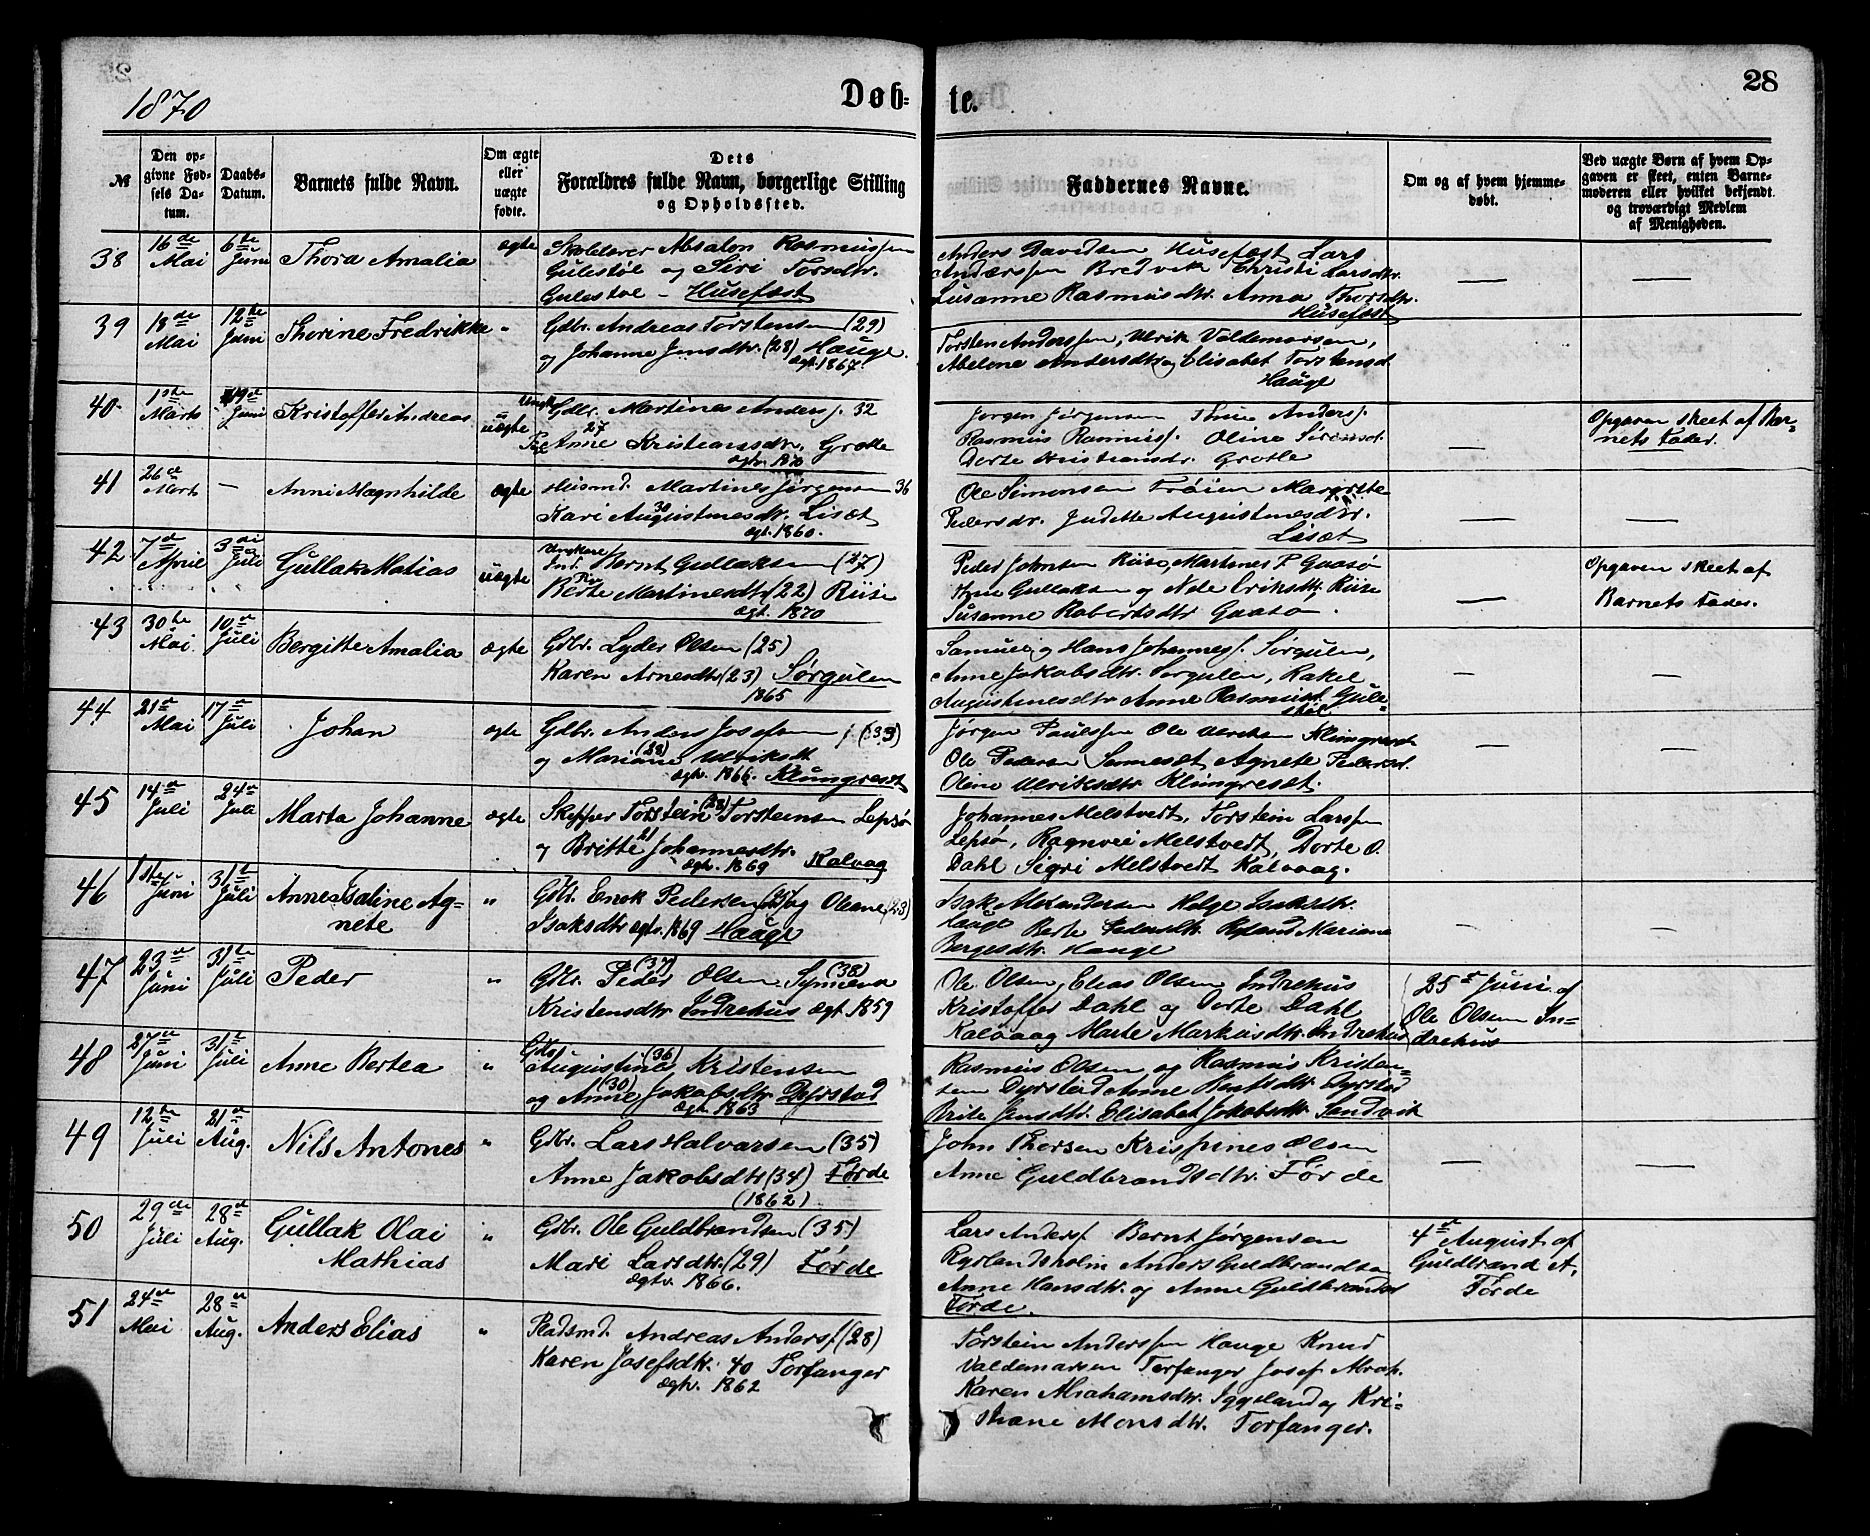 1870
Døb-
te.
28
№
Den op-
givne Fød-
sels Da-
tum.
Daabs-
Datum.
Barnets fulde Navn.
Om ægte
eller
uægte
fødte.
Dets
Forældres fulde Navn, borgerlige Stilling
og Opholdssted.
Faddernes Navne.
Om og af hvem hjemme-
døbt.
Ved uægte Børn af hvem Op-
gaven er skeet, enten Barne-
moderen eller hvilket bekjendt
og troværdigt Medlem
af Menigheden.
38 16de Mai 6te Juni Thora Amalia ægte
Skolelærer Absalon Rasmussen
Gulestøl og Siri Torsdtr.
Gulestøl - Husefæst
Anders Davidsen Husefæst Lars
Anderssen Bredvik Christi Larsdtr.
Susanne Rasmusdtr. Anna Thorsdtr.
Husefæst
39 18de Mai 12te Juni Thorine Fredrikke "
Gdbr. Andreas Torstensen (29)
og Johanne Jensdtr. (28) Hauge.
ægt. 1867.
Torsten Anderssen, Ulrik Valdemarsen,
Abelone Andersdtr. og Elisabet Torstensd.
Hauge
40. 1ste Marts 19de Juni Kristoffer Andreas uægte
Ungk. Gdbr. Martines Anderss. 32
Pige Anne 27 Kristiansdtr. Grotle
ægtv. 1870
Jørgen Jørgensen Thue Anderss.
Rasmus Rasmuss. Oline Sørensd.
Dorte Kristiansdr. Grotle
Opgaven skeet af Bar-
nets Fader.
41 26d Marts — Anni Magnhilde ægte
Husmd. Martines Jørgensen 36
Kari Augustinesdtr. 30 Lisæt
ægt. 1860.
Ole Simonsen Trøien Margrette
Pedersdr. Judette Augustinesdtr.
Lisæt
42 7d April 3die Juli Gullak Matias uægte
Ungkarl Ind. Bernt Gullaksen (27)
Pige Berte Martinesdtr. (22) Riise
ægt. 1870
Peder Johnsen Riise, Martines P. Gaasø
Gullaksen og Nele Eriksdtr. Riise
Susanne Robertsdtr. Gaasø.
Opgaven skeet af
Barnets Fader.
43 30te Mai 10de Juli Bergitte Amalia ægte
Gdbr. Lyder Olsen (25)
Karen Arnesdtr. (23) Sørgulen
1865
Samuel og Hans Johanness. Sørgulen,
Anne Jakobsdtr. Sørgulen, Rakel
Augustinesdtr. Anne Rasmusd. Gule-
støl
44 21de Mai 17de Juli Johan ægte
Gdbr. Anders Josefsen (33)
og Mariane (28) Ulriksdt.
ægtv. 1866. Klungreset
Jørgen Paulssen Ole Ulriksen Klungreset
Ole Pedersen Sannesæt Agnete Pedersd.
Oline Ulriksdtr. Klungreset.
45 14de Juli 24de Juli Marta Johanne ægte
Skipper Torstein (28) Torsteinsen Lepsø
og Britte Johannesdtr.
ægtv. 1869 Kalvaag
Johannes Melstvedt, Torstein Larssen
Lepsø, Ragnvei Melstvedt, Dorte O.
Dahl Sigri Melstvedt Kalvaag.
46 1ste Juni 31te Juli Anne Isaline Ag-
nete "
Gdbr. Enok Pedersen og Oleane (23)
Isaksdtr. ægtv. 1869 Hauge
Isak Alexandersen Helge Isaksdtr.
Hauge Berte Pedersdtr. Mariane
Børgesdtr. Hauge
47 23de Juni 31te Juli Peder "
Gdbr. Peder (37) Olsen Symeva (38)
Kristensdtr. Indrehus ægt. 1859
Ole Olsen, Elias Olsen Indrehus
Kristoffer Dahl og Dorte Dahl
Kalvaag Marte Markusdtr. Indrehus
25de Juni af
Ole Olsen In-
drehus
48 27de Juni 31te Juli Anne Bertea "
Gdbr. Augustines (36) Kristensen
og Anne (30) Jakobsdtr. Dyrstad
ægt. 1863
Rasmus Olsen og Rasmus Kristen-
sen Dyrstad Anne Dyrstad
Brite Jensdtr. Elisabet Jakobsdtr. Sandvik
49 12te Juli 21de Aug. Nils Antones "
Gdbr. Lars Halvarsen (35)
Anne Jakobsdtr. (34) Førde
(1862)
John Thorsen Krispines Olsen
Anne Guldbrandsdtr. Førde
50 29de Juli 28de Aug. Gullak Olai
Mathias "
Gdbr. Ole Guldbrandsen (35)
Mari Larsdtr. (29) Førde
ægtv. 1866.
Lars Anderss. Bernt Jørgensen
Rylandsholm Anders Guldbrandsen
Anne Hansdtr. og Anne Guldbrandsd.
Førde.
4de August af
Guldbrand A.
Førde
51 24de Mai 28de Aug. Anders Elias "
Pladsmd. Andreas Anderss. (28)
Karen Josefsdtr. 40 Torfanger
ægtv. 1862
Torstein Anderssen Hauge Knud
Valdemarsen Torfanger Josef Abrah.
Karen Abrahamsdtr. Iggeland og Kri-
stiane Monsdtr. Torfanger.